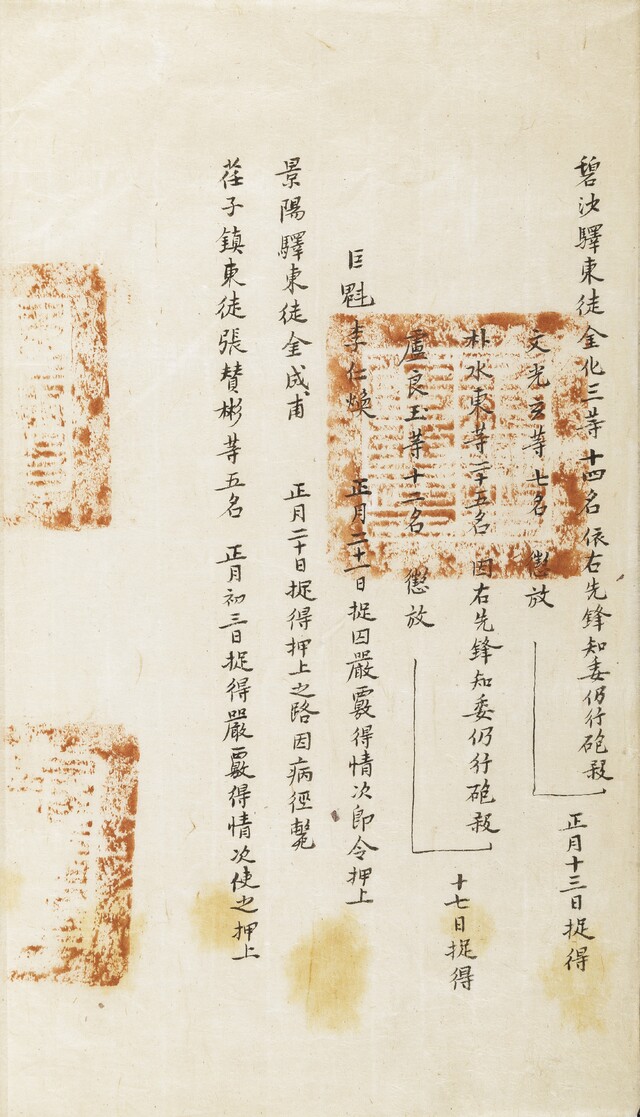 碧沙驛東徒金化三等十四名依右先鋒知委仍行砲殺
文光玄等七名 懲放
正月十三日捉得
朴水東等二十五名因右先鋒知委仍行砲殺
盧良玉等十二名 懲放
十七日捉得
巨魁李仁煥 正月二十一日捉囚嚴覈得情次卽令押上
景陽驛東徒金成甫 正月二十日捉得押上之路因病徑斃
荏子鎮東徒張賛彬等五名 正月初三日捉得嚴覈得情次使之押上